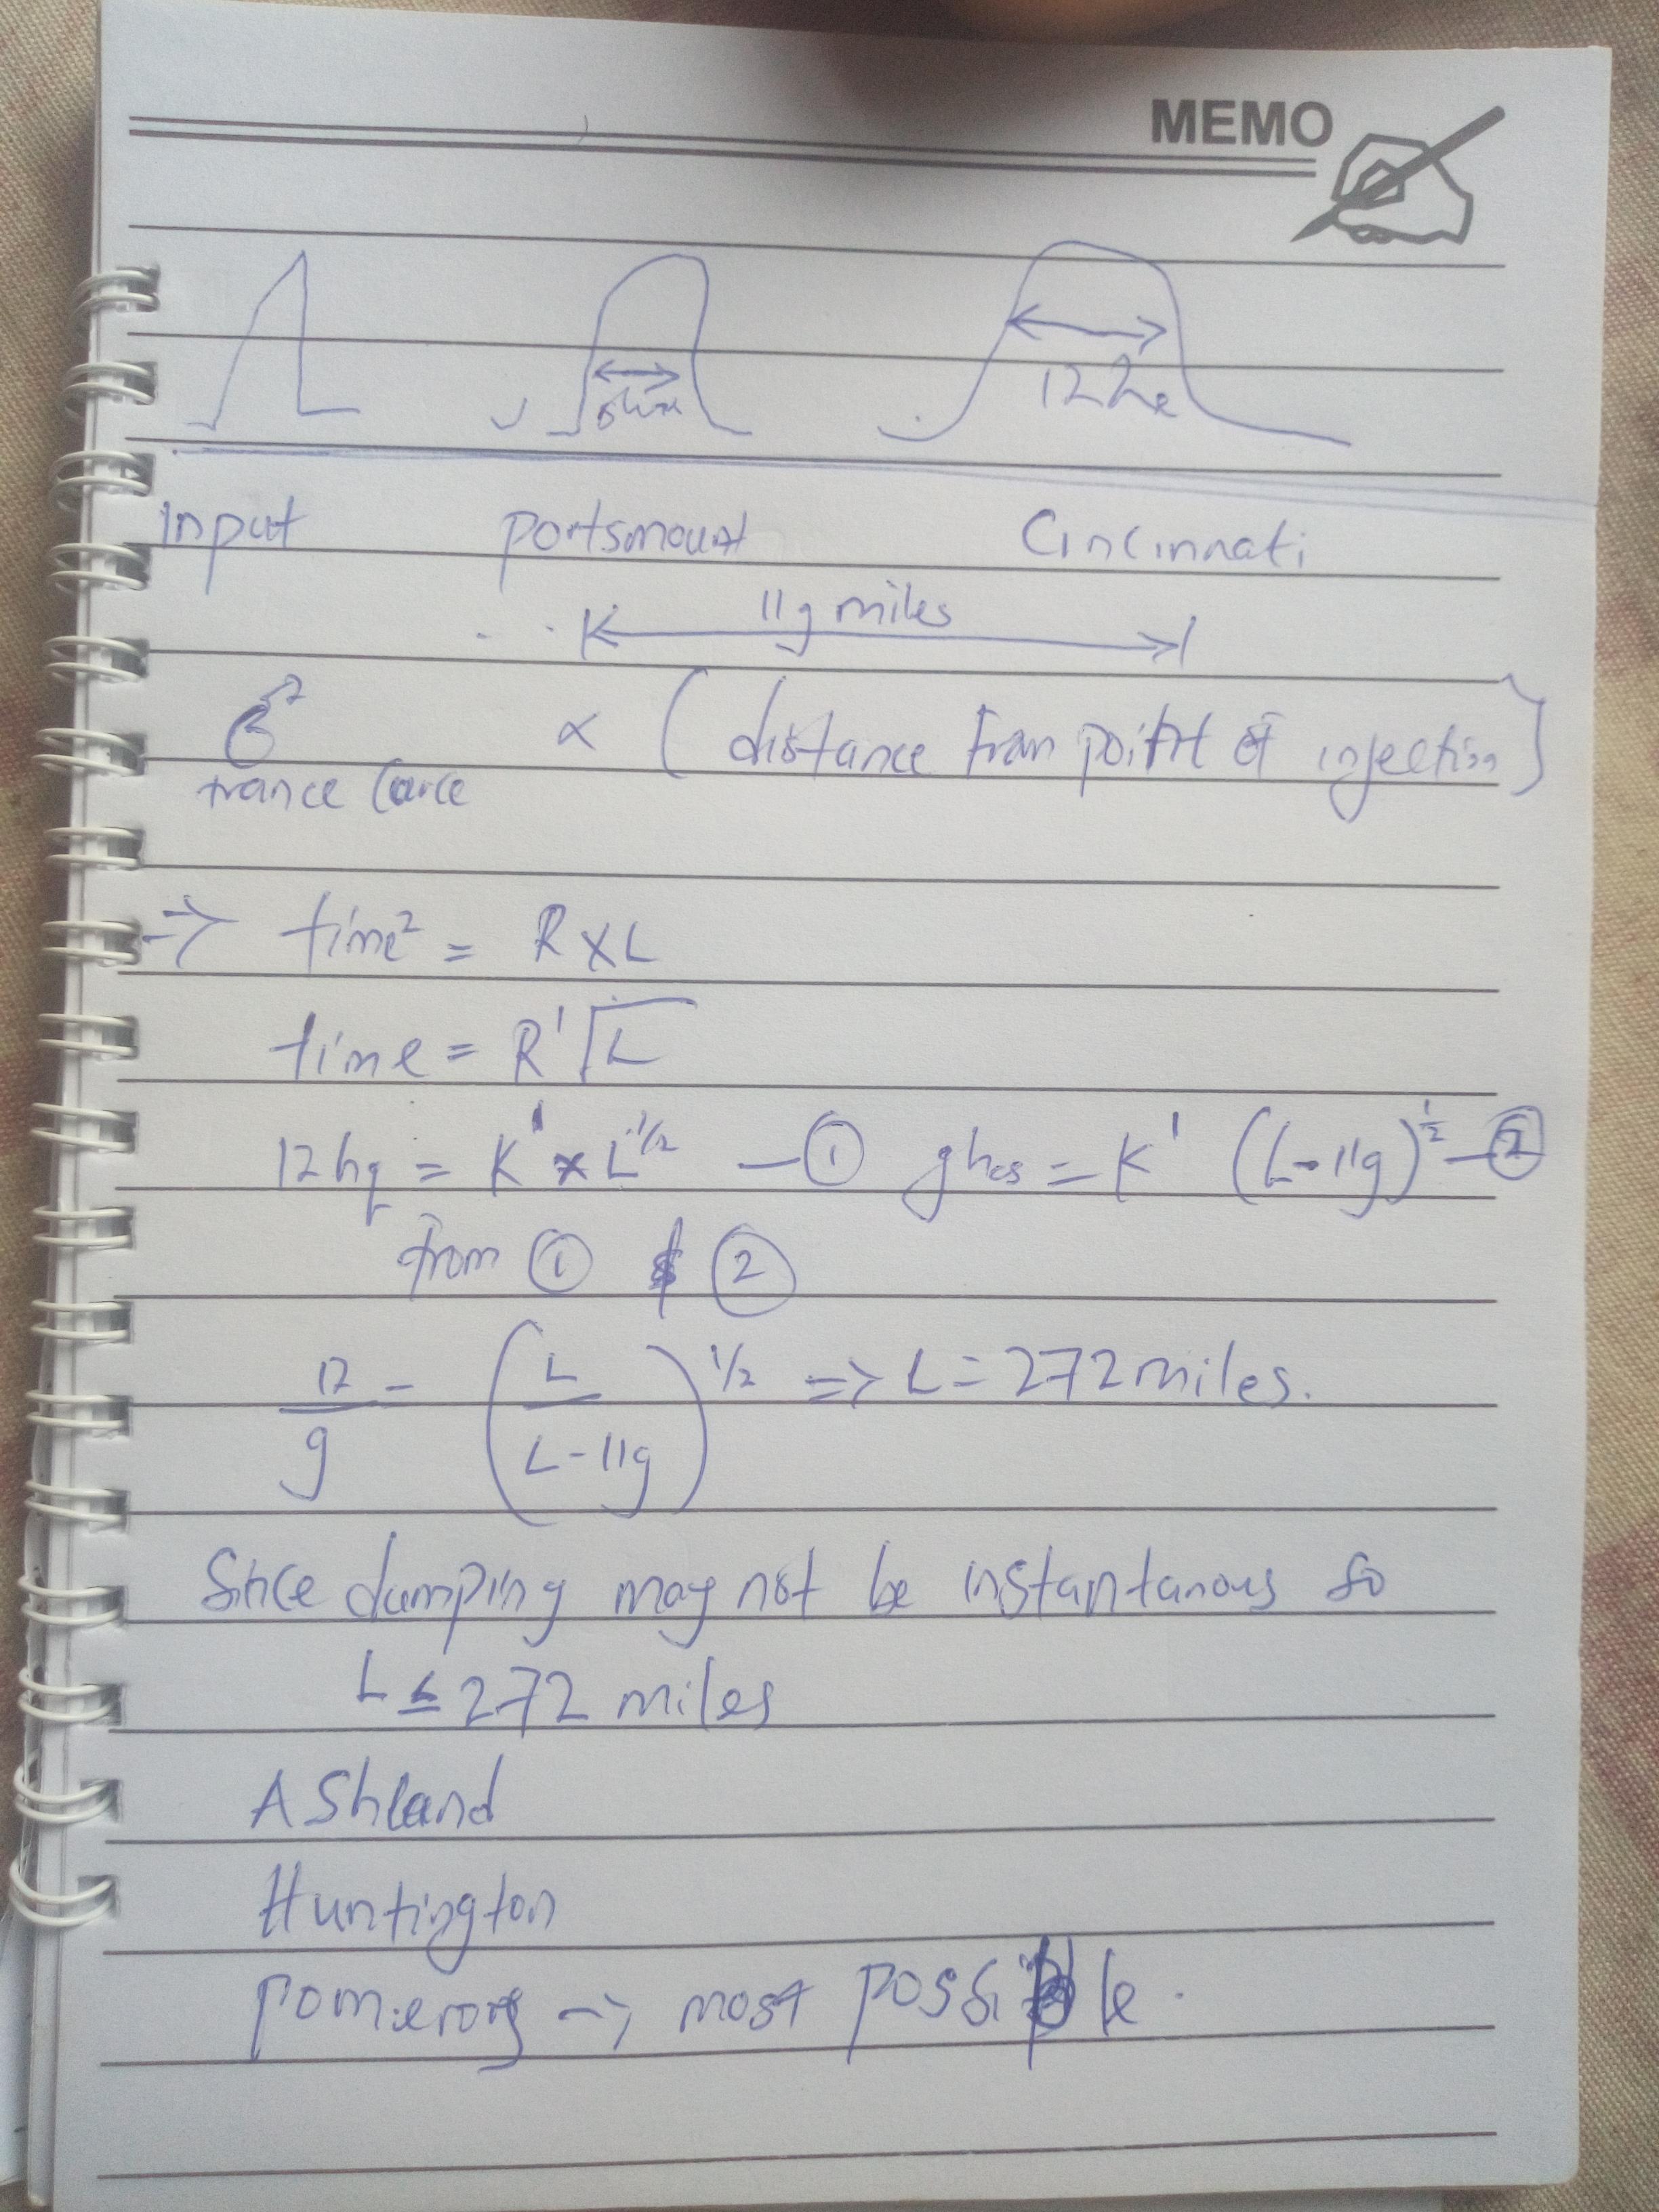 MEMO
12hr
Input portsmount Cincinnati
119 miles
σ² ∝ (distance from point of injection)
trance Curce
⇒ time² = R×L
time = R'√L
12hr = K' × L^1/2 — ① 9hrs = K' (L-119)^1/2 — ②
from ① & ②
12/9 = (L/L-119)^1/2 ⇒ L = 272 miles.
Since dumping may not be instantanous so
L ≤ 272 miles
AShland
Huntington
pomerory → most possible.